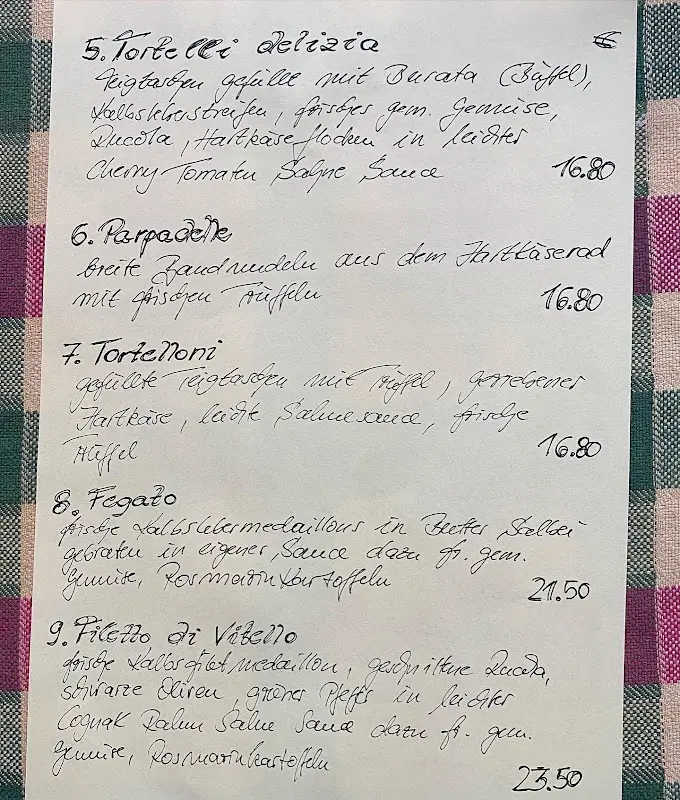 5. Tortelli delizia €
Teigtaschen gefüllt mit Burata (Büffel),
Kalbsleberstreifen, frisches gem. Gemüse,
Rucola, Hartkäseflocken in leichter
Cherry Tomaten Sahne Sauce 16.80
6. Parpadelle
breite Bandnudeln aus dem Hartkäserad
mit frischen Trüffeln 16.80
7. Tortelloni
gefüllte Teigtaschen mit Trüffel, geriebener
Hartkäse, leichte Sahnesauce, frische
Trüffel 16.80
8. Fegato
frische Kalbslebermedaillons in Butter Salbei
gebraten in eigener Sauce dazu fr. gem.
Gemüse, Rosmarinkartoffeln 21.50
9. Filetto di Vitello
frische Kalbsfiletmedaillon, geschnittene Rucola,
schwarze Oliven, grüner Pfeffer in leichter
Cognak Rahm Sahne Sauce dazu fr. gem.
Gemüse, Rosmarinkartoffeln
23.50